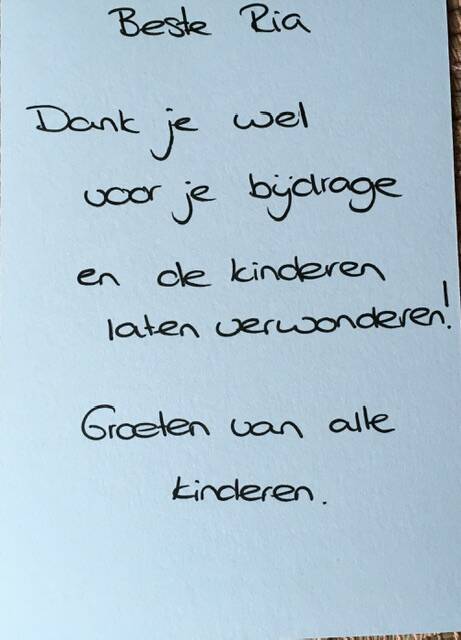 Beste Ria
Dank je wel
voor je bijdrage
en de kinderen
laten verwonderen!
Groeten van alle
kinderen.